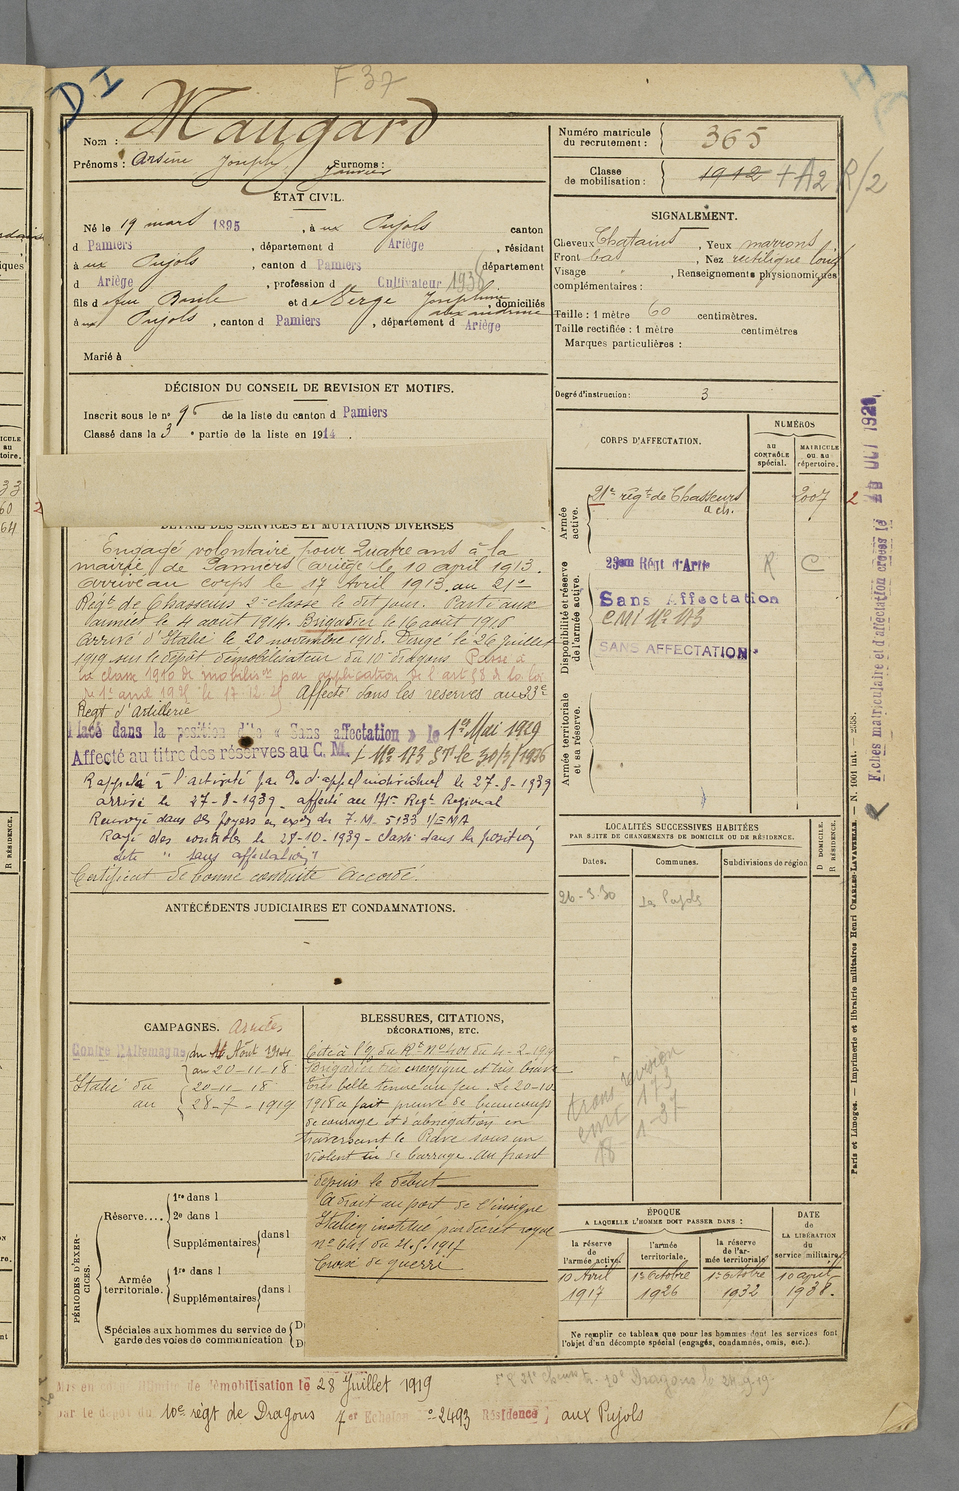 F 37
D I
Nom : Maugard
Prénoms : Arsène Joseph Janvier Surnoms :
ÉTAT CIVIL.
Né le 19 mars 1895, à ux Pujols canton
d Pamiers, département d Ariège, résidant
à ux Pujols, canton d Pamiers département
d Ariège, profession d Cultivateur 1936
fils d e feu Basile et d e Verge Joséphine, domiciliés
à ux Pujols, canton d Pamiers, département d Ariège
Marié à
DÉCISION DU CONSEIL DE REVISION ET MOTIFS.
Inscrit sous le n° 95 de la liste du canton d Pamiers
Classé dans la 3 e partie de la liste en 1914.
DÉTAIL DES SERVICES ET MUTATIONS DIVERSES
Engagé volontaire pour Quatre ans à la
mairie de Pamiers (Ariège) le 10 april 1913.
Arrivé au corps le 17 Avril 1913 au 21e
Régt de Chasseurs 2e classe le dit jour. Parti aux
armées le 4 août 1914. Brigadier le 16 août 1916
Arrivé d'Italie le 20 novembre 1918. Dirigé le 26 juillet
1919 sur le dépôt démobilisateur du 10e dragons. Passé à
la classe 1910 de mobilison par application de l'art 58 de la loi
du 1er avril 1923 le 17.12.25 Affecté dans les réserves au 23e
Régt d'Artillerie
Placé dans la position dite « Sans affectation » le 1er Mai 1929
Affecté au titre des réserves au C. M. I No 173 St le 30/3/1936
Rappelé à l'activité par O. d'appel individuel le 27-8-1939
arrivé le 27-8-1939 - affecté au 171e Regt Regional
Renvoyé dans ses foyers en exon de F. M. 5133 1/EMA
Rayé des contrôles le 28-10-1939 - classé dans la position
dite " sans affectation "
Certificat de bonne conduite Accordé.
ANTÉCÉDENTS JUDICIAIRES ET CONDAMNATIONS.
CAMPAGNES. Armées
Contre l'Allemagne du 4 Août 1914
au 20-11-18
Italie du 20-11-18
au 28-7-1919
BLESSURES, CITATIONS,
DÉCORATIONS, ETC.
Cité à l'O. du Rt No 401 du 4-2-1919
Brigadier très énergique et très brave
très belle tenue au feu. Le 20-10
1918 a fait preuve de beaucoup
de courage et d'abnégation en
traversant le Piave sous un
violent tir de barrage. Au front
depuis le début
A droit au port de l'insigne
Italien institué par décret royal
n° 641 du 21.5.1917
Croix de guerre
PÉRIODES D'EXERCICES.
Réserve....
1re dans l
2e dans l
Supplémentaires dans l
Armée territoriale.
1re dans l
Supplémentaires dans l
Spéciales aux hommes du service de
garde des voies de communication
Numéro matricule
du recrutement : 365
Classe
de mobilisation : 1912 + A2 R/2
SIGNALEMENT.
Cheveux Chatains, Yeux marrons
Front bas, Nez rectiligne long
Visage, Renseignements physionomiques
complémentaires :
Taille : 1 mètre 60 centimètres.
Taille rectifiée : 1 mètre centimètres
Marques particulières :
Degré d'instruction : 3
CORPS D'AFFECTATION.
NUMÉROS
AU CONTRÔLE spécial.
MATRICULE OU AU répertoire.
Armée active.
21e régt de Chasseurs 2007
à ch.
Disponibilité et réserve de l'armée active.
23em Régt d'Artie R C
Sans Affectation
CMI No 173
SANS AFFECTATION
Armée territoriale et sa réserve.
LOCALITÉS SUCCESSIVES HABITÉES
PAR SUITE DE CHANGEMENTS DE DOMICILE OU DE RÉSIDENCE.
Dates. Communes. Subdivisions de région
D DOMICILE. R RÉSIDENCE.
26-3-30 Les Pujols
trans révision
CMI 173
18-1-37
ÉPOQUE
A LAQUELLE L'HOMME DOIT PASSER DANS :
la réserve de l'armée active.
l'armée territoriale.
la réserve de l'armée territoriale
DATE DE LA LIBÉRATION du service militaire.
10 Avril 1917
1er Octobre 1926
1er Octobre 1932
10 april 1938.
Ne remplir ce tableau que pour les hommes dont les services font
l'objet d'un décompte spécial (engagés, condamnés, omis, etc.).
Mis en congé illimité de démobilisation le 28 Juillet 1919
par le dépôt du 10e régt de Dragons 7er Echelon no 2493 Résidence aux Pujols
Fiches matriculaire et d'affectation créées le OCT 1929
Paris et Limoges. — Imprimerie et librairie militaires Henri CHARLES-LAVAUZELLE. — N. 1001 int. — 2558.